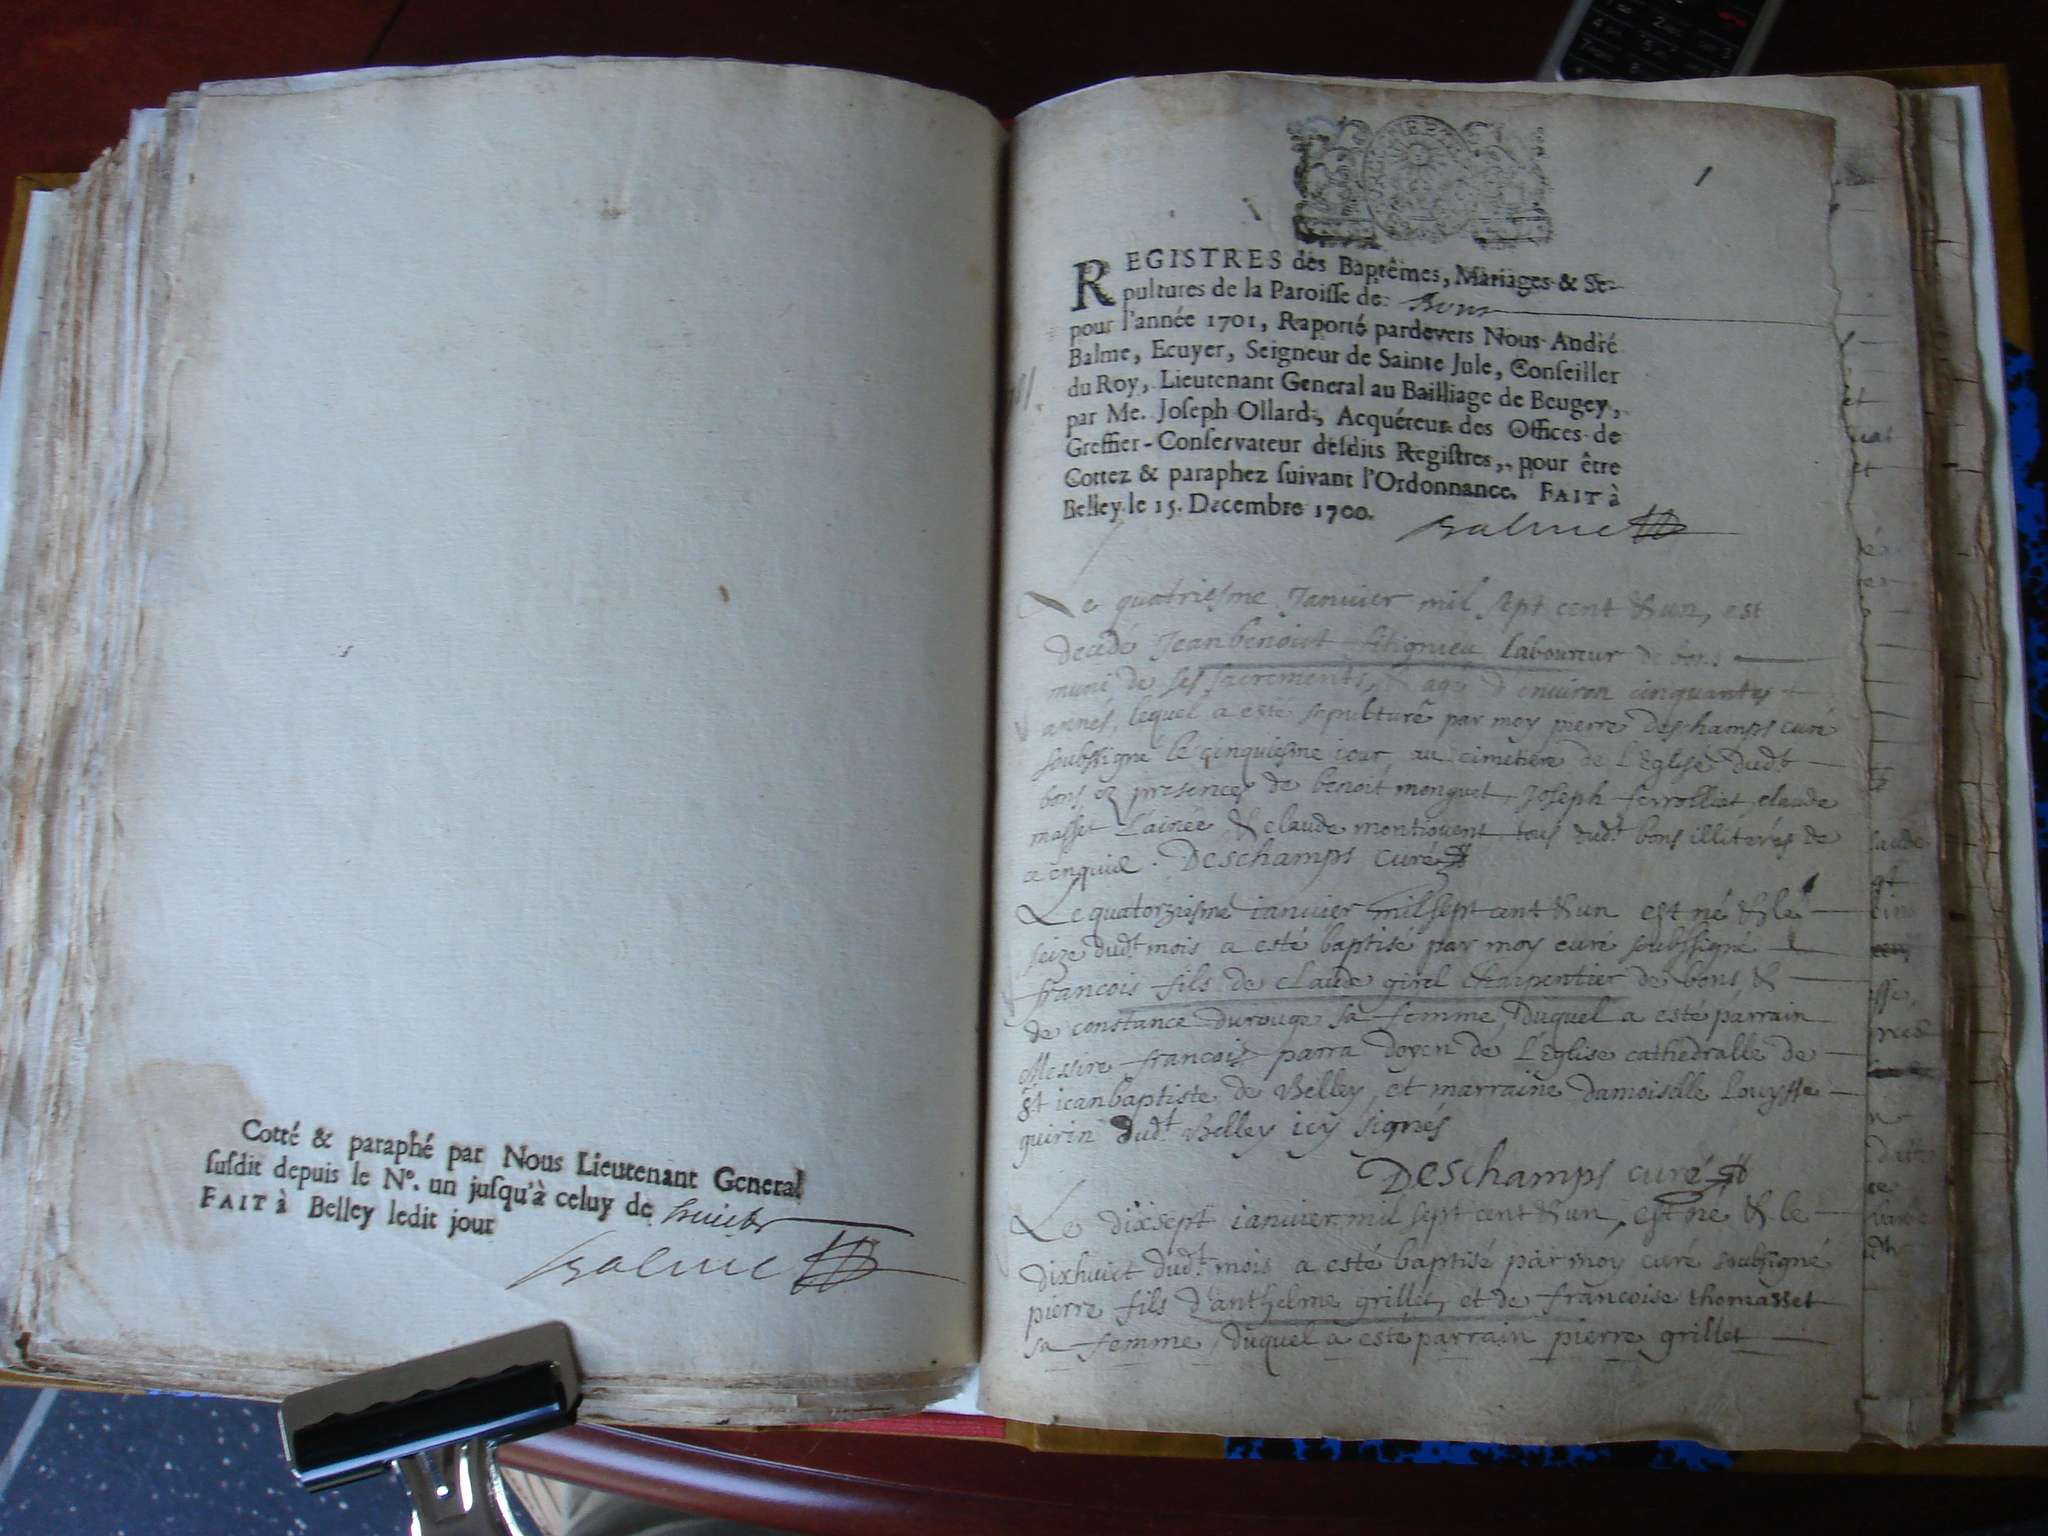 Cotté & paraphé par Nous Lieutenant General
susdit depuis le N°. un jusqu'à celuy de huict
FAIT à Belley ledit jour
Balme
1
REGISTRES des Baptêmes, Mariages & Se-
pultures de la Paroisse de Bons
pour l'année 1701, Raporté pardevers Nous André
Balme, Ecuyer, Seigneur de Sainte Jule, Conseiller
du Roy, Lieutenant General au Bailliage de Beugey,
par Me. Joseph Ollard, Acquéreur des Offices de
Greffier-Conservateur desdits Registres, pour être
Cottez & paraphez suivant l'Ordonnance. FAIT à
Belley le 15. Decembre 1700.
Balme
Le quatriesme Januier mil sept cent & un, est
decedé Jean benoict laboureur de bons
muni de ses sacrements, & agé d'enuiron cinquante
annés, lequel a esté sepulturé par moy pierre Deschamps curé
soubssigné le cinquiesme iour au cimetiere de L'Eglise dudt
bons ez presences de benoit monguet, Joseph ferrolliet, claude
masset L'ainée & claude tous dudt bons illiterés de
ce enquis. Deschamps curé
Le quatorziesme ianuier mil sept cent & un est né & le
seize dudt mois a esté baptisé par moy curé soubssigné
francois fils de claude girel charpentier de bons &
de constance durouge sa femme, duquel a esté parrain
Messire francois parra doyen de L'Eglise cathedralle de
St iean baptiste de Belley, et marraine damoiselle Louysse
guirin dudt Belley icy signés
Deschamps curé
Le dixsept ianuier mil sept cent & un, est né & le
dixhuict dudt mois a esté baptisé par moy curé soubssigné
pierre fils d'anthelme grillet, et de francoise thomasset
sa femme, duquel a esté parrain pierre grillet